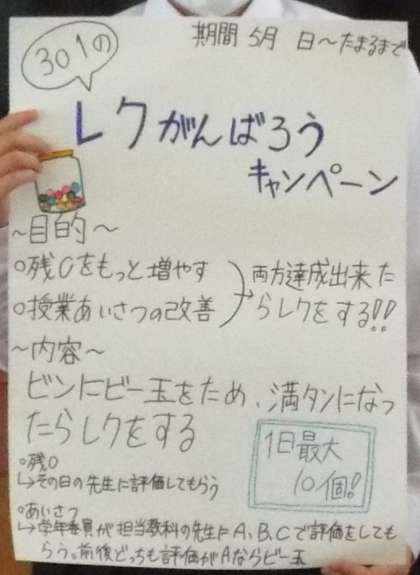 301の
期間 5月 日〜たまるまで
レクがんばろう
キャンペーン
〜目的〜
○残0をもっと増やす
○授業あいさつの改善
両方達成出来た
らレクをする!!
〜内容〜
ビンにビー玉をため、満タンになっ
たらレクをする
1日最大
10個!
○残0
↳その日の先生に評価してもらう
○あいさつ
↳学年委員が担当教科の先生にA、B、Cで評価をしても
らう。前後どっちも評価がAならビー玉